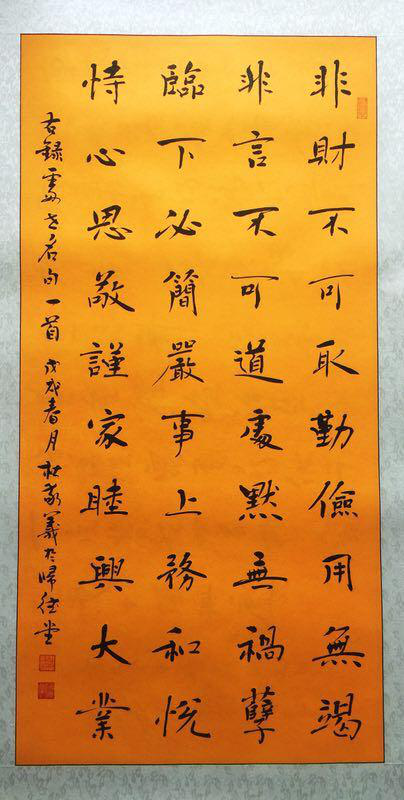 非財不可取勤儉用無竭
非言不可道處默無禍孽
臨下必簡嚴事上務和悅
恃心思敬謹家睦興大業
右錄處世名句一首戊戌春月
義於歸德堂